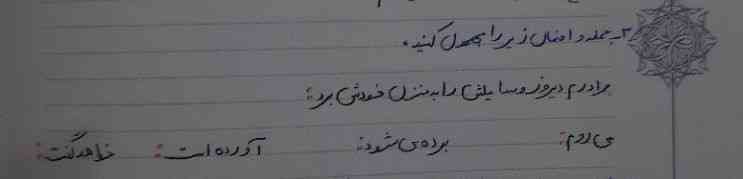 ۳- جمله و افعال زیر را مجهول کنید.
برادرم دیروز وسایلش را به منزل خودش برد:
می روم: برده می شود: آورده است: خواهد گفت: